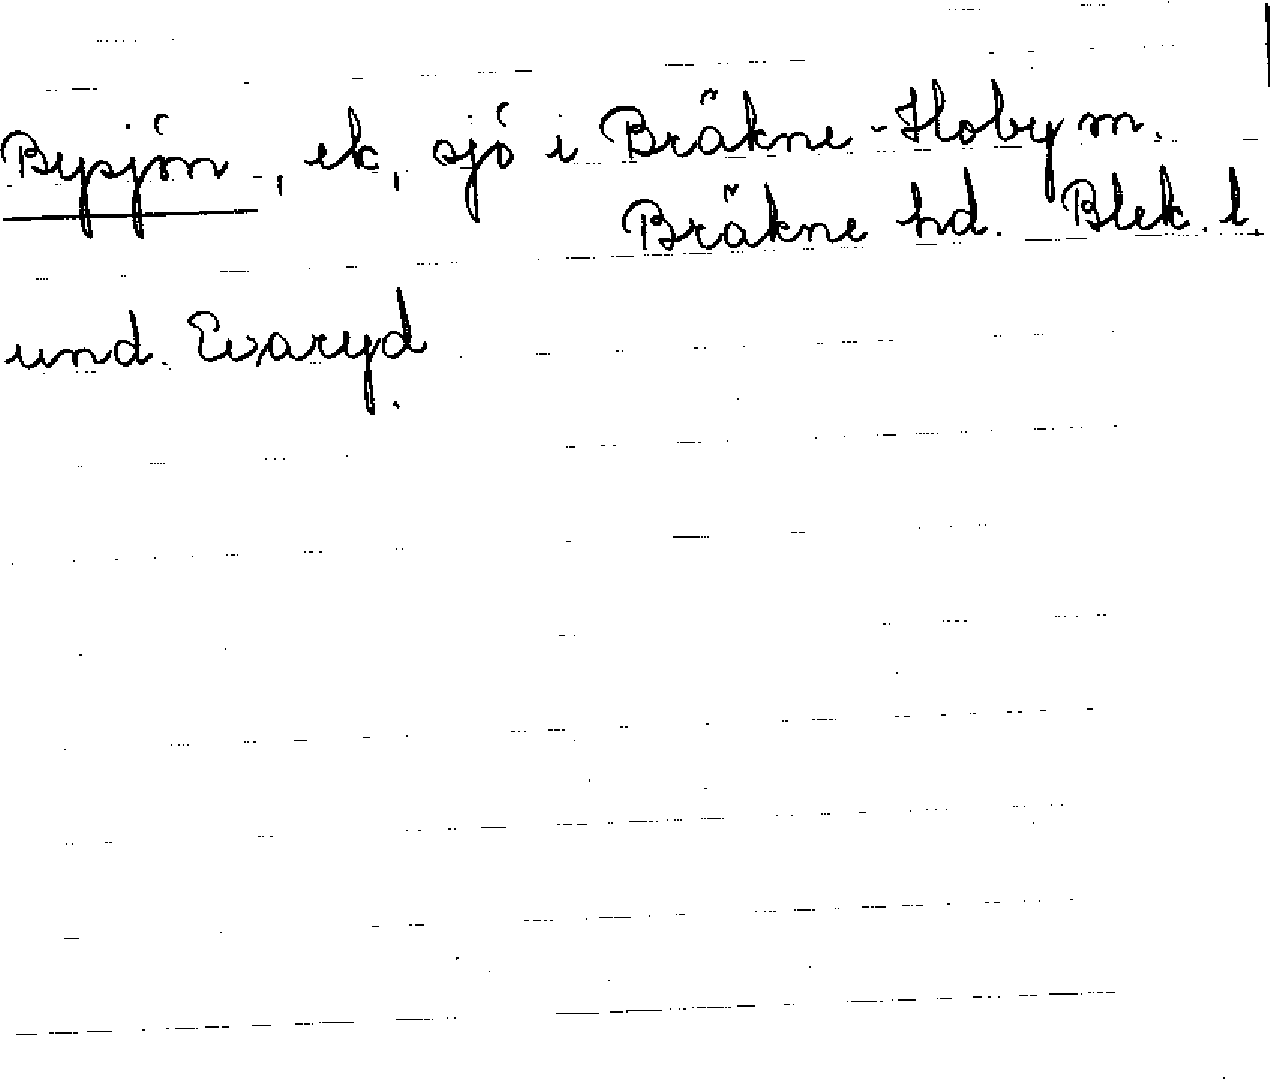 Bysjön, ek, sjö i Bräkne-Hoby sn.
Bräkne hd. Blek. l.
und. Evaryd.